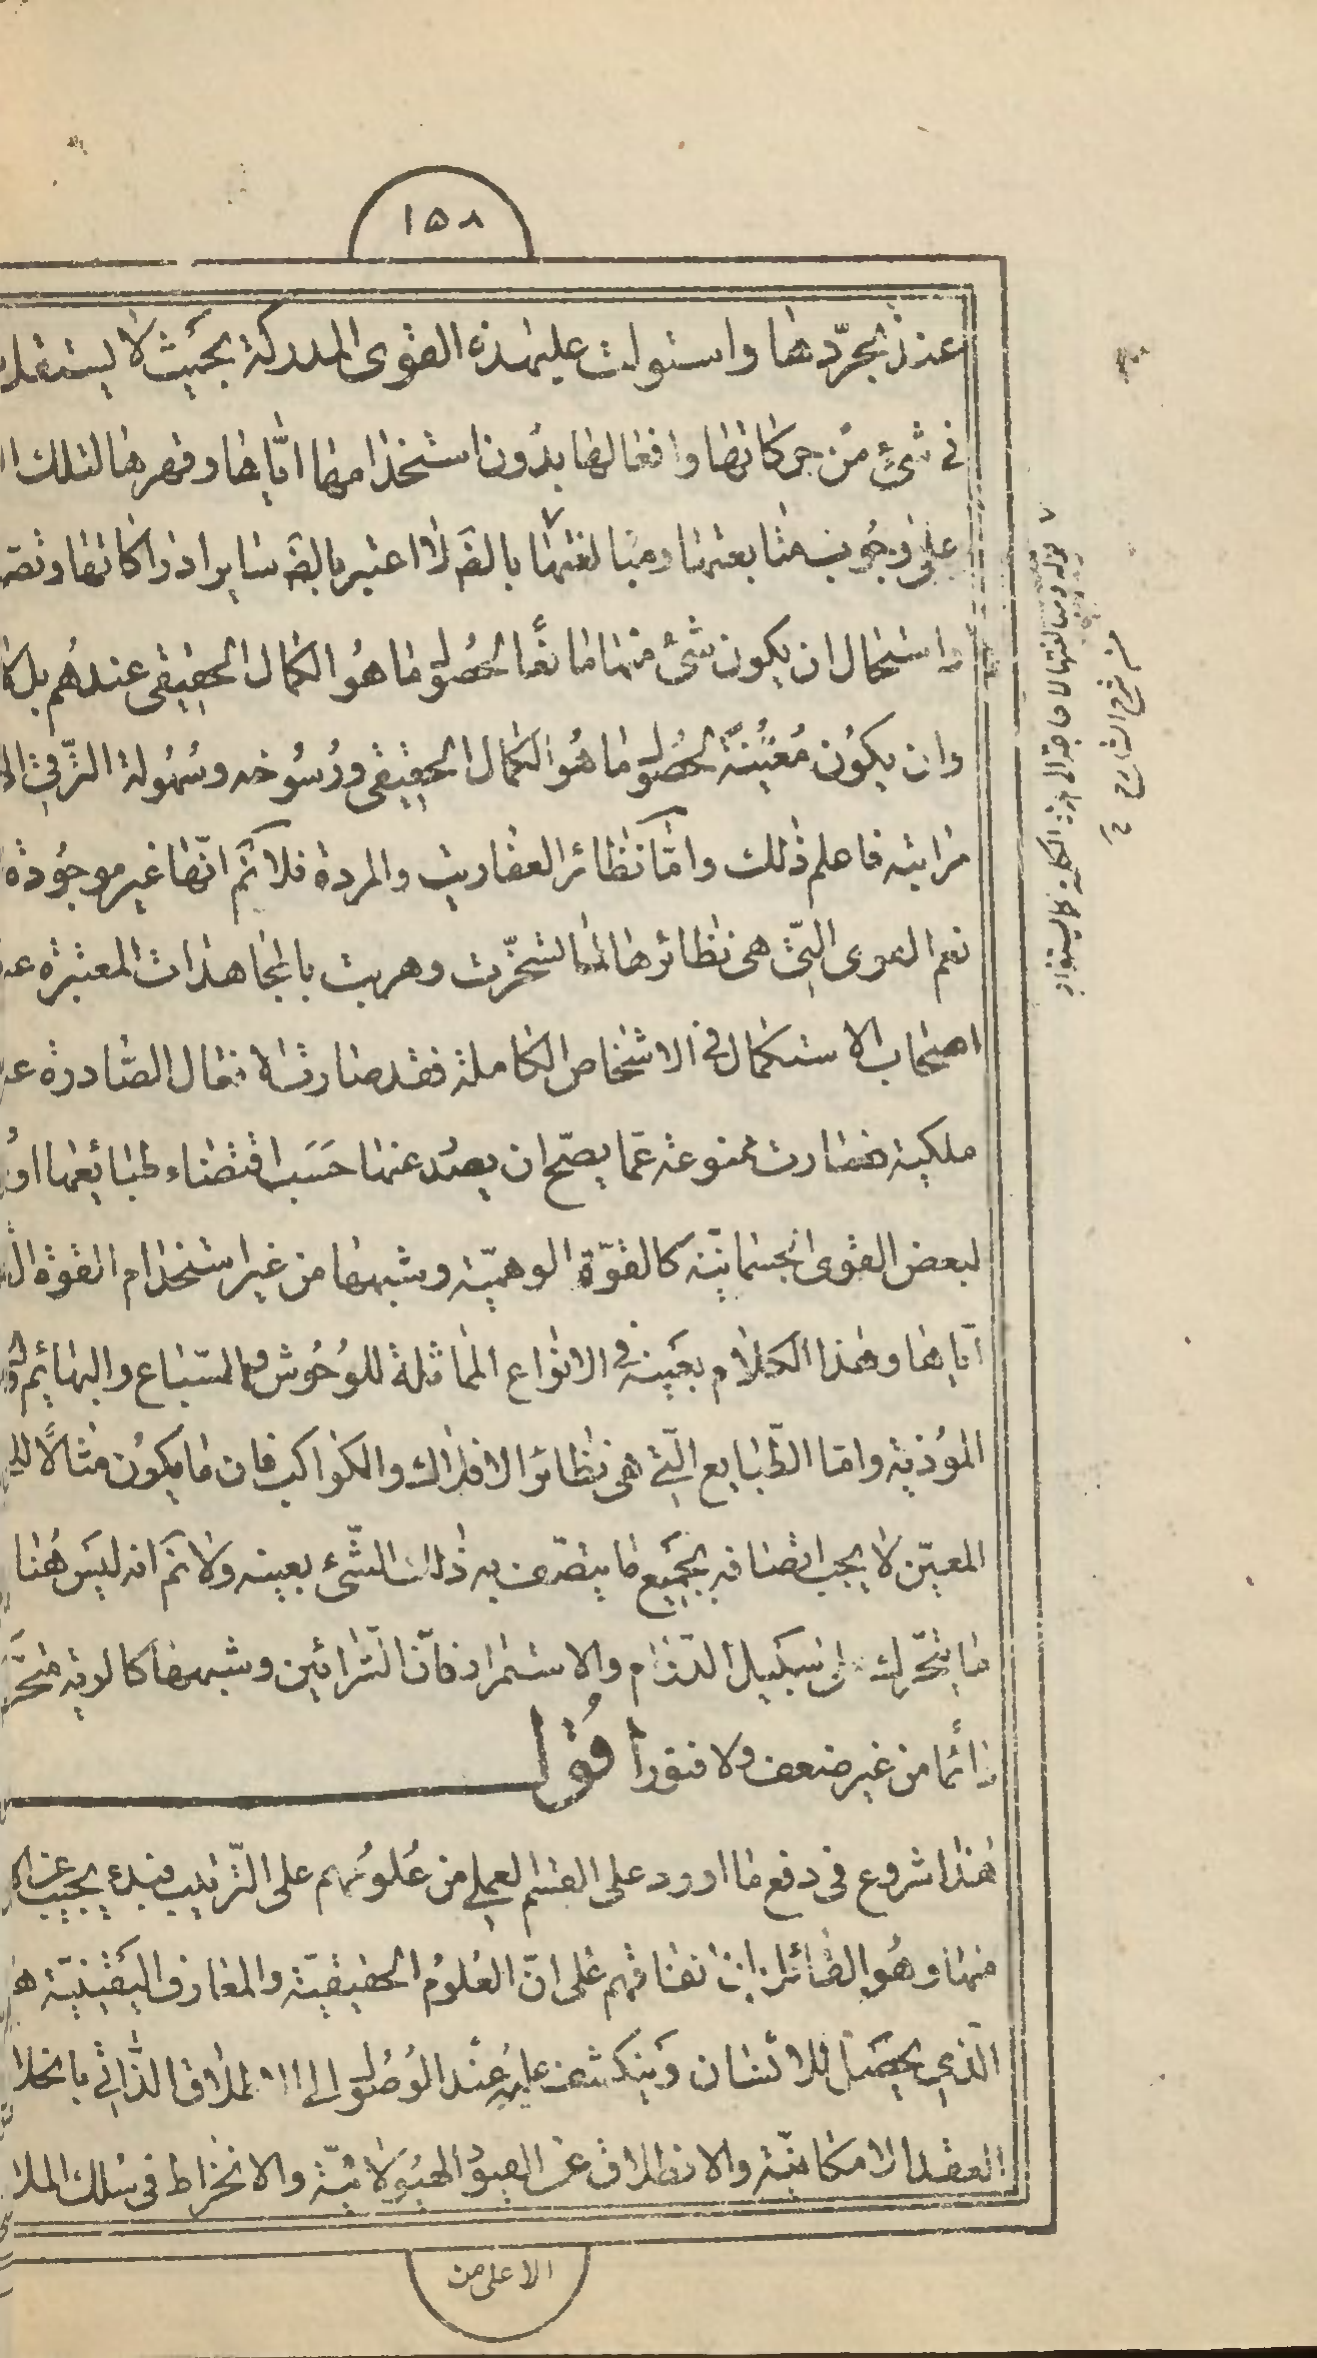 ١٥٨
عند تجرّدها واستولت عليها هذه القوى المدركة بحيث لا يستقل
فى شئ من حركاتها وافعالها بدون استخدامها ايّاها وقهرها لتلك
على وجوب متابعتها ومبالغتها بالقهر لا اعتبر بالقهر ساير ادراكاتها
واستحال ان يكون شئ منها مانعًا لحصول ما هو الكمال الحقيقى عندهم بل
وان يكون مُعيّنة لحصول ما هو الكمال الحقيقى ورُسُوخه وسُهُولة الترقى
مراتبه فاعلم ذلك وامّا نظائر العفاريت والمردة فلا نم انّها غير موجُودة
نعم القوى التى هى نظائرها لما تسخّرت وهربت بالمجاهدات المعتبرة
اصحاب الاستكمال فى الاشخاص الكاملة فقد صارت الافعال الصّادرة
ملكية فصارت ممنوعة عمّا يصحّ ان يصدُر عنها حَسَب اقتضاء طبائعها او
لبعض القوى الجسمانيّة كالقوّة الوهميّة وشبهها من غير استخدام القوّة
ايّاها وهذا الكلام بعينه فى الانواع المماثلة للوُحُوش والسّباع والبهائم
المؤذية وامّا الطّبايع التى هى نظائر الافلاك والكواكب فان ما يكون مثالًا
المعيّن لا يجب اتصافه بجميع ما يتصّف به ذلك الشّئ بعينه ولا نم انه ليس هُنا
ما يتحّرك على سبيل الدّوام والاستمرار فانّ الشّرائين وشبهها كالرية
دائما من غير ضعف ولا فتور اقُول
هذا شروع فى دفع ما اورد على القسم العملى من عُلومُهم على التّرتيب يجيب عن
منها وهُو القائل بان اتفاقهم على انّ العُلوُم الحقيقيّة والمعارف اليقينيّة
الّذي يحصل للانسان وينكشف عليه عند الوُصُول الى الاطلاق الذّاتى
العقد الامكانيّة والانطلاق عن القيود الهيُولانيّة والانخراط فى سلك الملا
الاعلى من
قوله ومبالغتها لا حاجة الى هذه الكلمة كما يستفاد
من شرح الشارح